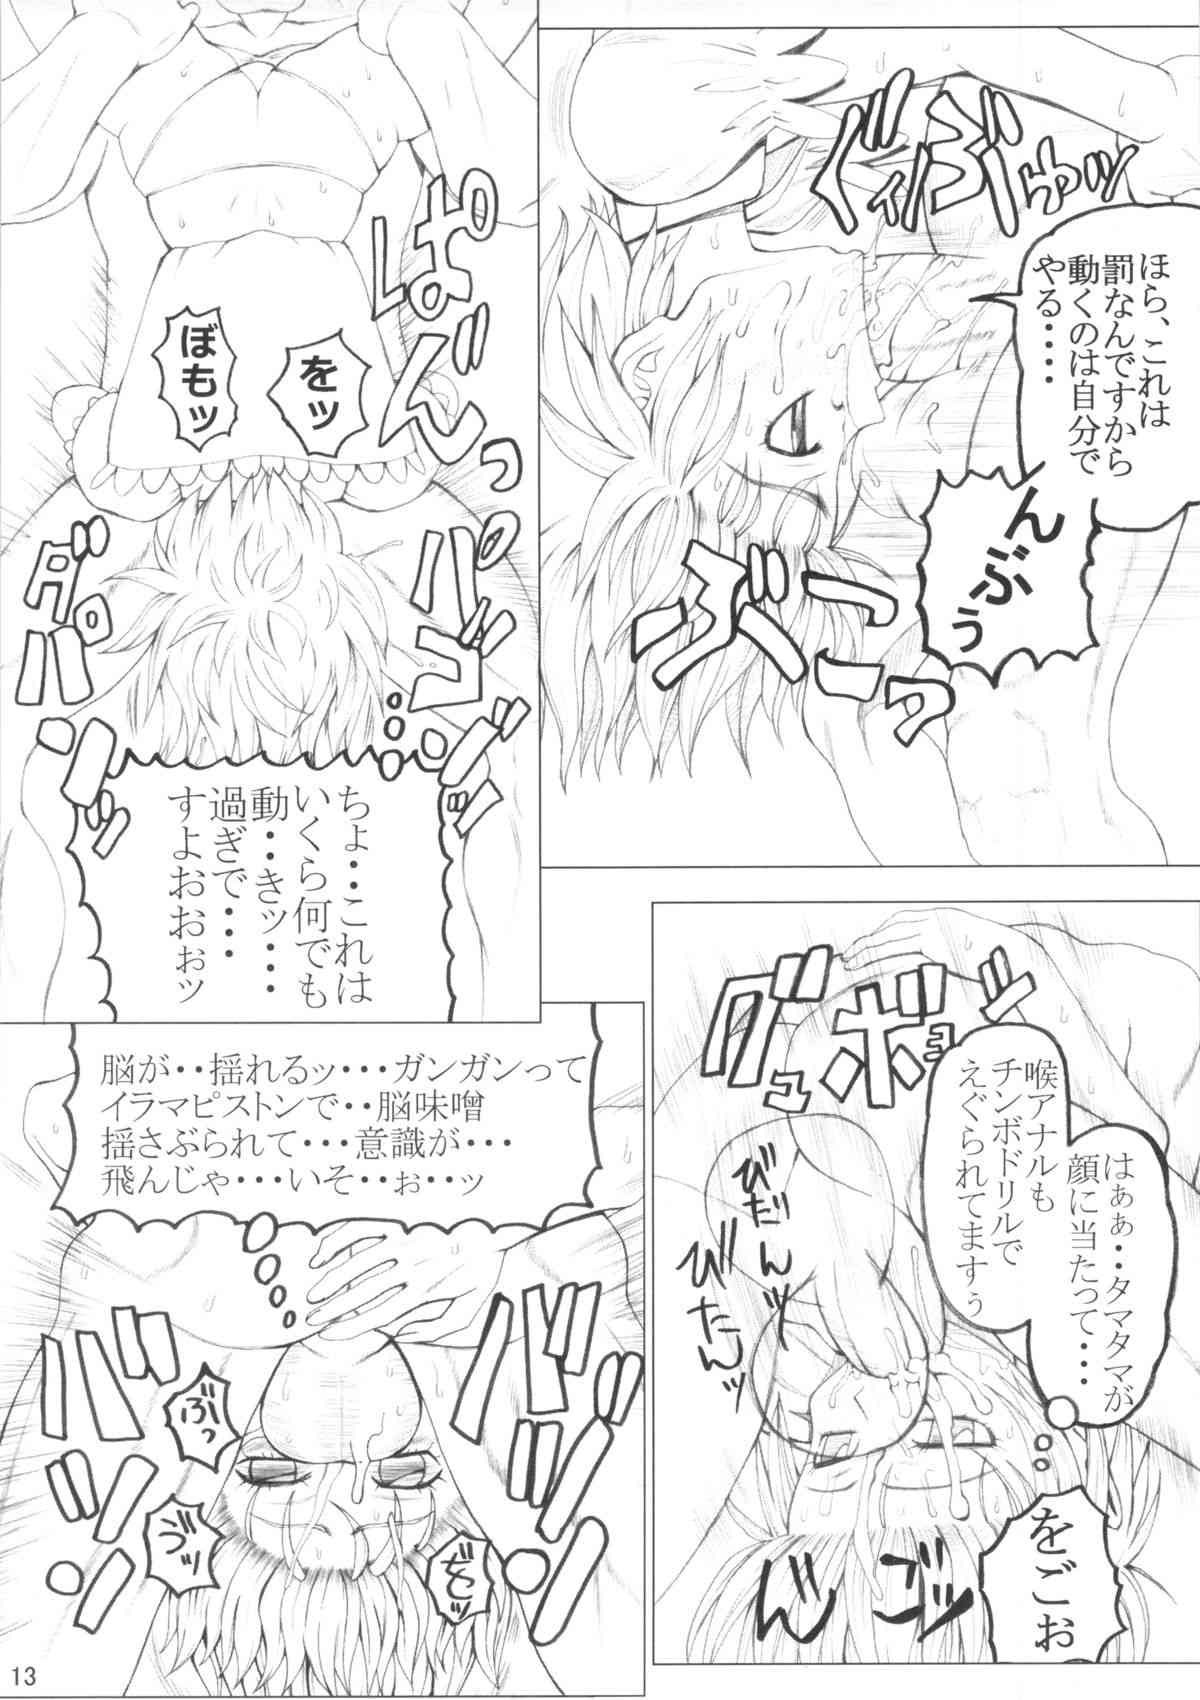 ほら、これは
罰なんですから
動くのは自分で
やる・・・・
ぐぃぶゅッ
んぶぅ
ぶーーっっ
ぱぁんっ
をッ
ぼもッ
パゴンッ
ダパンッ
ちょ・・これは
いくら何でも
動・・きッ・・・
過ぎで・・・・
すよおおぉッ
グボッ
ュョ
喉アナルも
チンボドリルで
えぐられてますぅ
はぁぁ・・タマタマが
顔に当たって・・・・
びたんッ
びたんッ
をごお
ゴッ
脳が・・揺れるッ・・・ガンガンって
イラマピストンで・・脳味噌
揺さぶられて・・・意識が・・・
飛んじゃ・・・いそ・・ぉ・・ッ
バンッ
バンッ
ぶっ
づッ
13